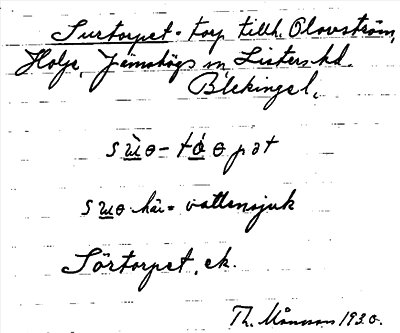 Surtorpet - torp tillh. Olovström,
Holje, Jämshögs sn, Listers hd.
Blekinge l.
sùɵ - tó ɵ pət
suɵ här = vattensjuk
Sörtorpet, ek.
Th. Månsson 1930.